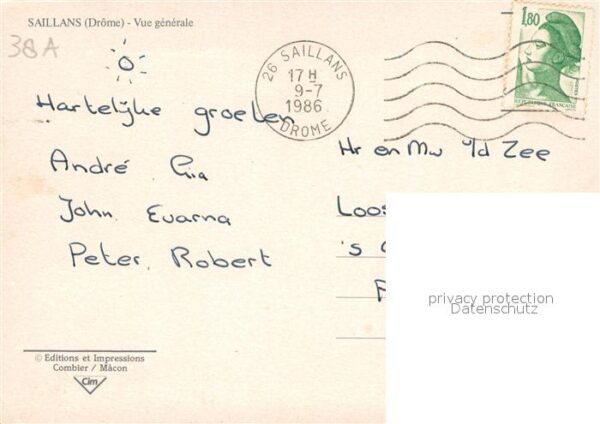 SAILLANS (Drôme) - Vue générale
38A
26 SAILLANS
17 H
9-7
1986
DROME
1,80
REPUBLIQUE FRANCAISE
Hartelijke groeten
André Gia
John. Evarna
Peter. Robert
Hr en Mw v/d Zee
Loos
's
privacy protection
Datenschutz
© Editions et Impressions
Combier / Mâcon
Cim